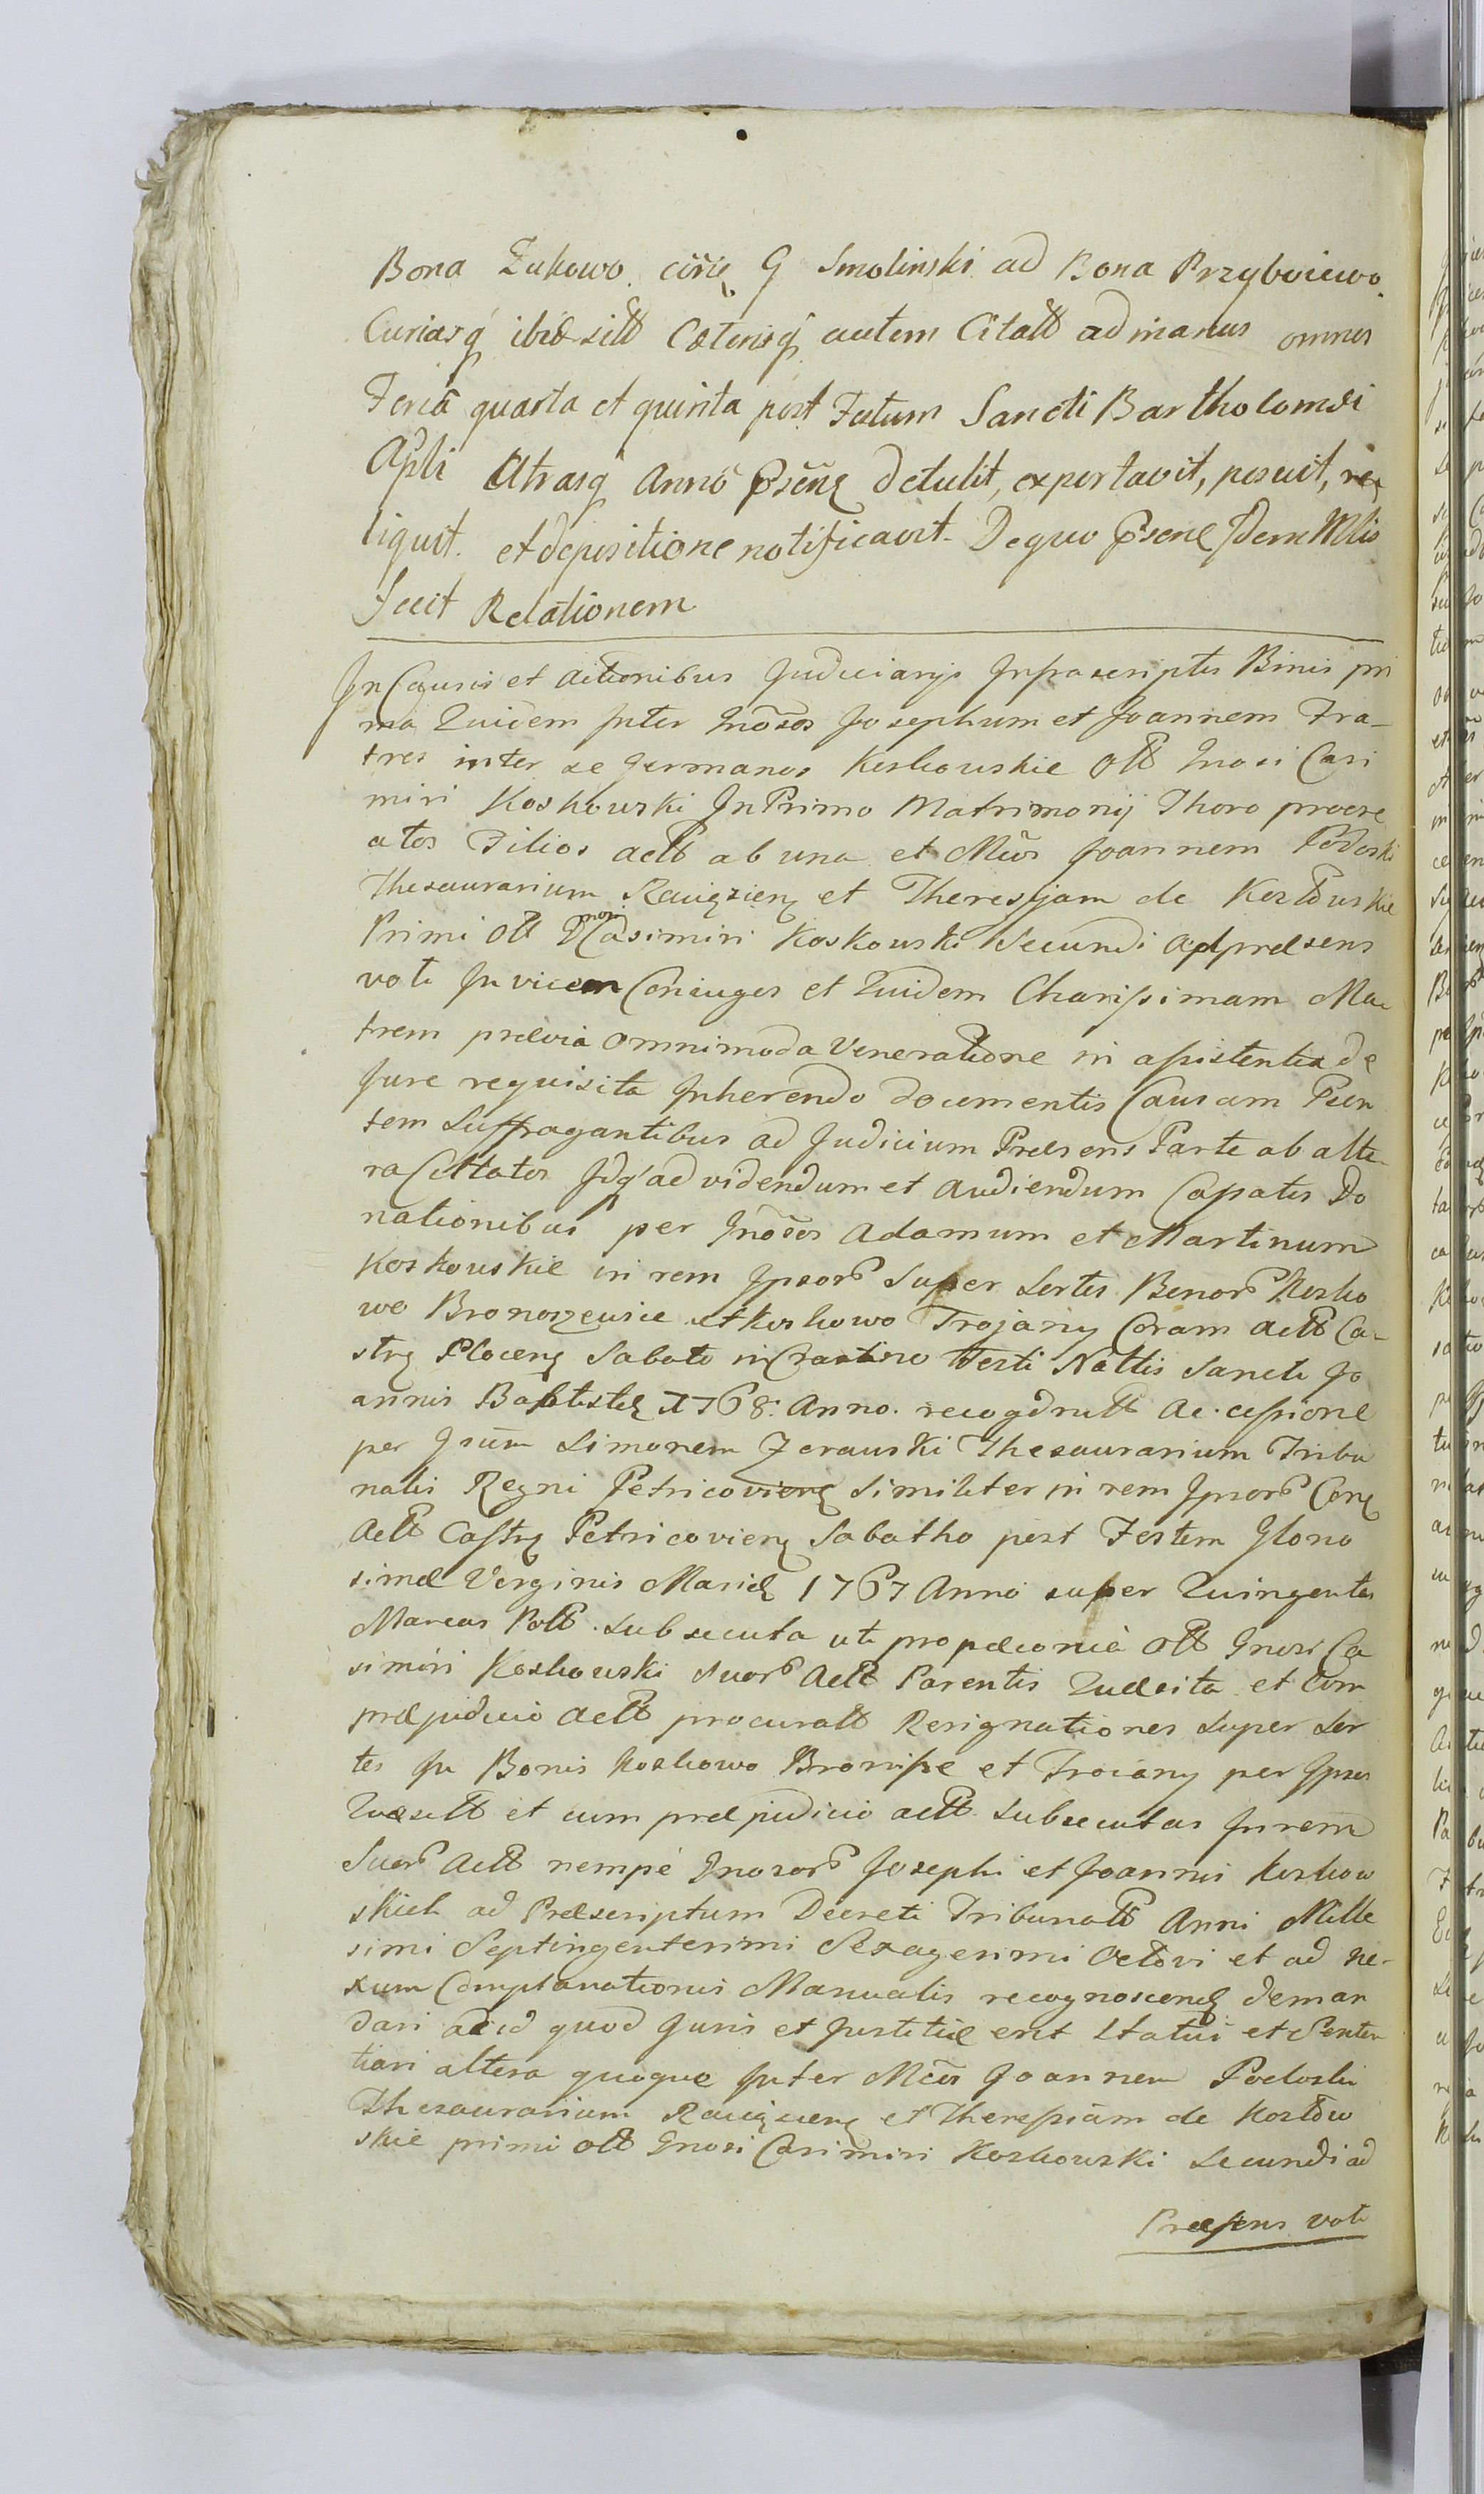 Bona Żukowo. circę G Smolinski ad Bona Przyboiewo
Curiasq ibid sitt Cæterisq autem Citatt ad manus omnes
Feria quarta et quinta post Festum Sancti Bartholomæi
Apli Utrasq Anno Psenę detulit, exportavit, posuit, re
liquit. et depositione notificavit. De quo Psene Idem Mlis
Fecit Relationem
In Causis et Actionibus Judiciarijs Infrascriptis Binis pri
ma Quidem Inter Gnosos Josephum et Joannem Fra-
tres inter se Germanos Koskowskie Ott Gnosi Casi
miri Koskowski In Primo Matrimonij Thoro procre
atos Filios Actt ab una et Mcos Joannem Podoski
Thesaurarium Rawięzienę et Theresyam de Kozłowskie
Primi Ott Gnosi Casimiri Koskowski Secundi ad præsens
voti Invicem Coniuges et Quidem Charissimam Ma
trem prævia Omnimoda Veneratione in assistentia de
Jure requisita Inherendo documentis Causam Præn
tem Suffragantibus ad Judicium Præsens Parte ab alte
ra Cittatos Idq ad videndum et Audiendum Cassatis Do
nationibus per Gnosos Adamum et Martinum
Koskowskie in rem Ipsor Super Sortes Bonor Kosko
wo Bronoszewice et Koskowo Trojany Coram Actt Ca-
strę Plocenę Sabato in Crastino Festi Nattis Sancti Jo
annis Baptistæ 1768. Anno. recognitt Ac cessione
per Gsum Simonem Zerawski Thesaurarium Tribu
nalis Regni Petricovienę Similiter in rem Ipsor Corę
Actt Castrę Petricovienę Sabatho post Festum Glorio
simæ Verginis Mariæ 1767 Anno super Quingentas
Marcas Poll. Subsecuta uti pro pæconia Ott Gnosi Ca
simiri Koskowski Suor Actt Parentis Quæsita et Cum
præjudicio Actt procuratt Resignationes Super Sor
tes In Bonis Koskowo Bronisze et Troiany per Ipsos
Quæsitt et cum præjudicio Actt Subsecutas In rem
Suor Actt nempe Gnosor Josephi et Joannis Koskow
skich ad Præscriptum Decreti Tribunatt Anni Mille
simi Septingentesimi Sexagesimi Octavi et ad ne-
xum Complanationis Manualis recognoscendę deman
dari ac id quod Juris et Justitiæ erit Statui et Senten
tiari altera quoque Inter Mcos Joannem Podoski
Thesaurarium Rawięzienę et Theressiam de Kozłow
skie primi Ott Gnosi Casimiri Koskowski Secundi ad
Præsens voti